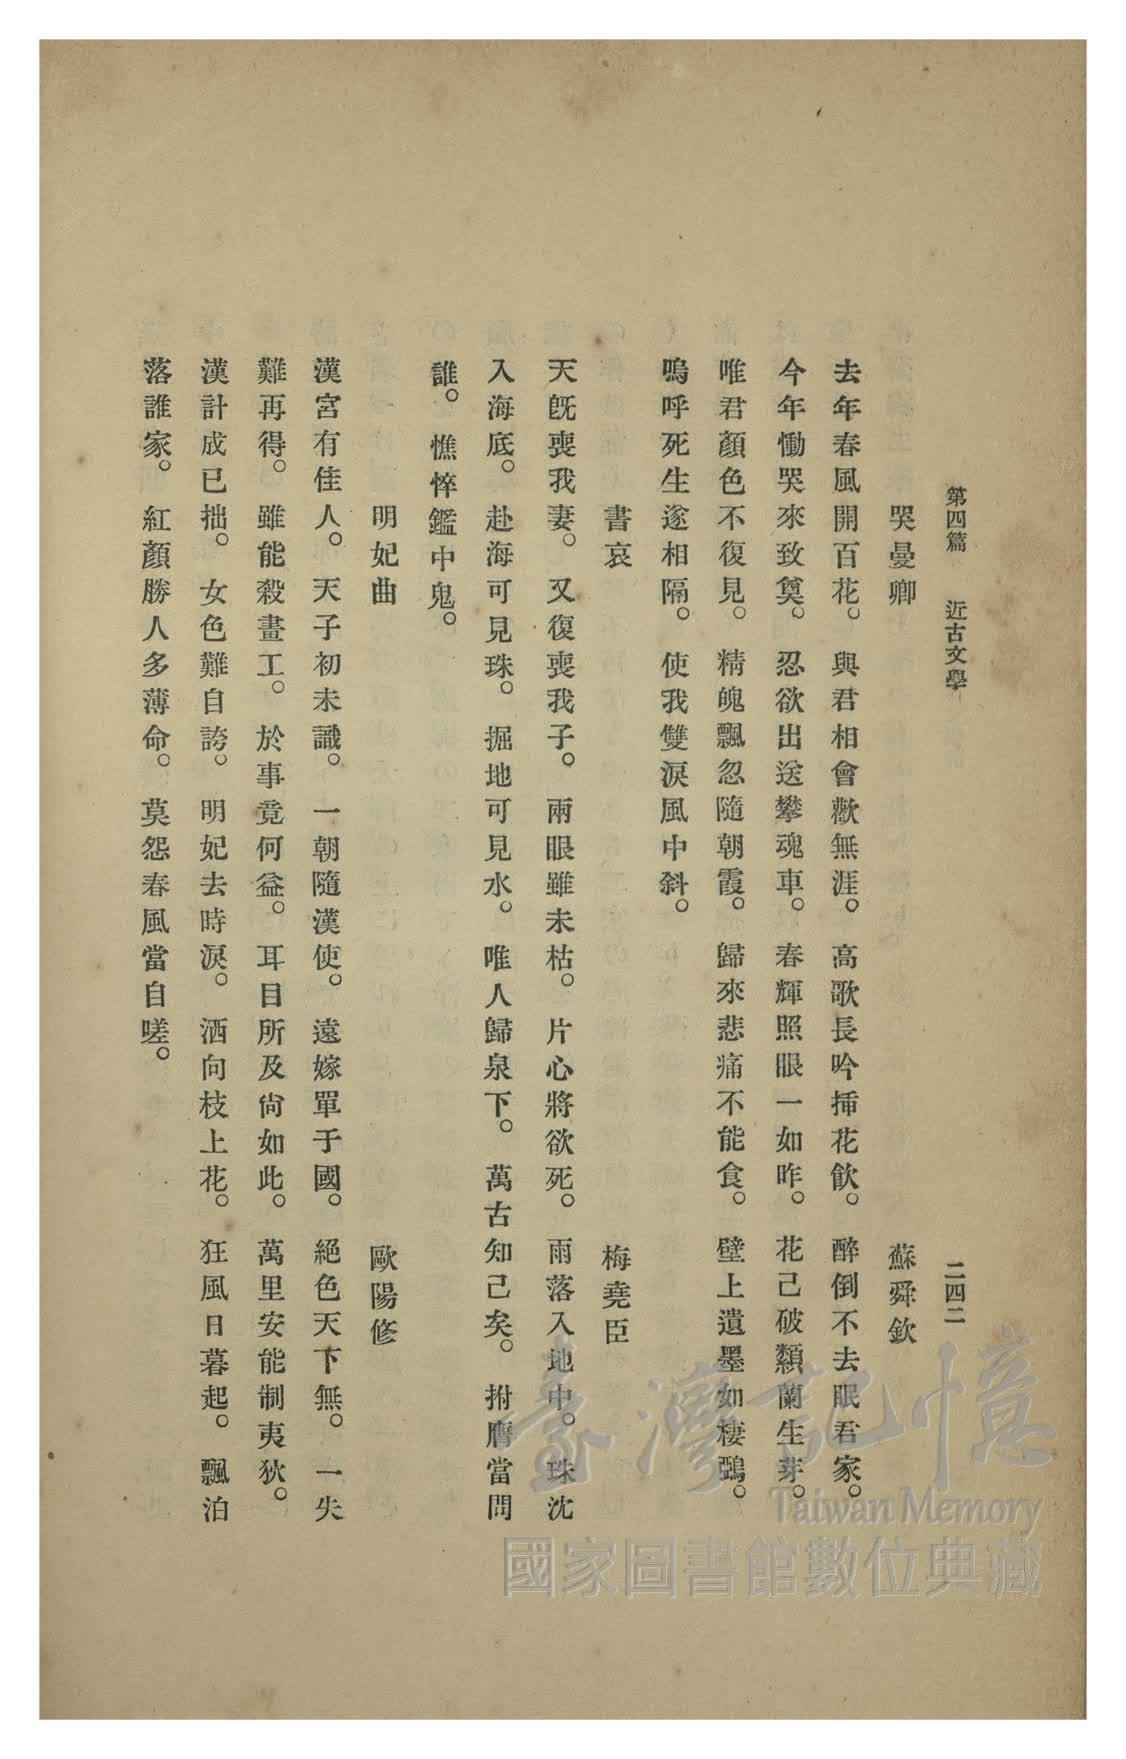 第四篇　近古文學　二四二
哭曼卿　蘇舜欽
去年春風開百花。與君相會歡無涯。高歌長吟揷花飮。醉倒不去眠君家。
今年慟哭來致奠。忍欲出送攀魂車。春輝照眼一如昨。花己破顙蘭生芽。
唯君顏色不復見。精魄飄忽隨朝霞。歸來悲痛不能食。壁上遺墨如棲鵶。
嗚呼死生遂相隔。使我雙淚風中斜。
書哀　梅堯臣
天既喪我妻。又復喪我子。兩眼雖未枯。片心將欲死。雨落入地中。珠沈
入海底。赴海可見珠。掘地可見水。唯人歸泉下。萬古知己矣。拊膺當問
誰。憔悴鑑中鬼。
明妃曲　歐陽修
漢宮有佳人。天子初未識。一朝隨漢使。遠嫁單于國。絕色天下無。一失
難再得。雖能殺畫工。於事竟何益。耳目所及尙如此。萬里安能制夷狄。
漢計成已拙。女色難自誇。明妃去時淚。洒向枝上花。狂風日暮起。飄泊
落誰家。紅顏勝人多薄命。莫怨春風當自嗟。
臺灣記憶
Taiwan Memory
國家圖書館數位典藏